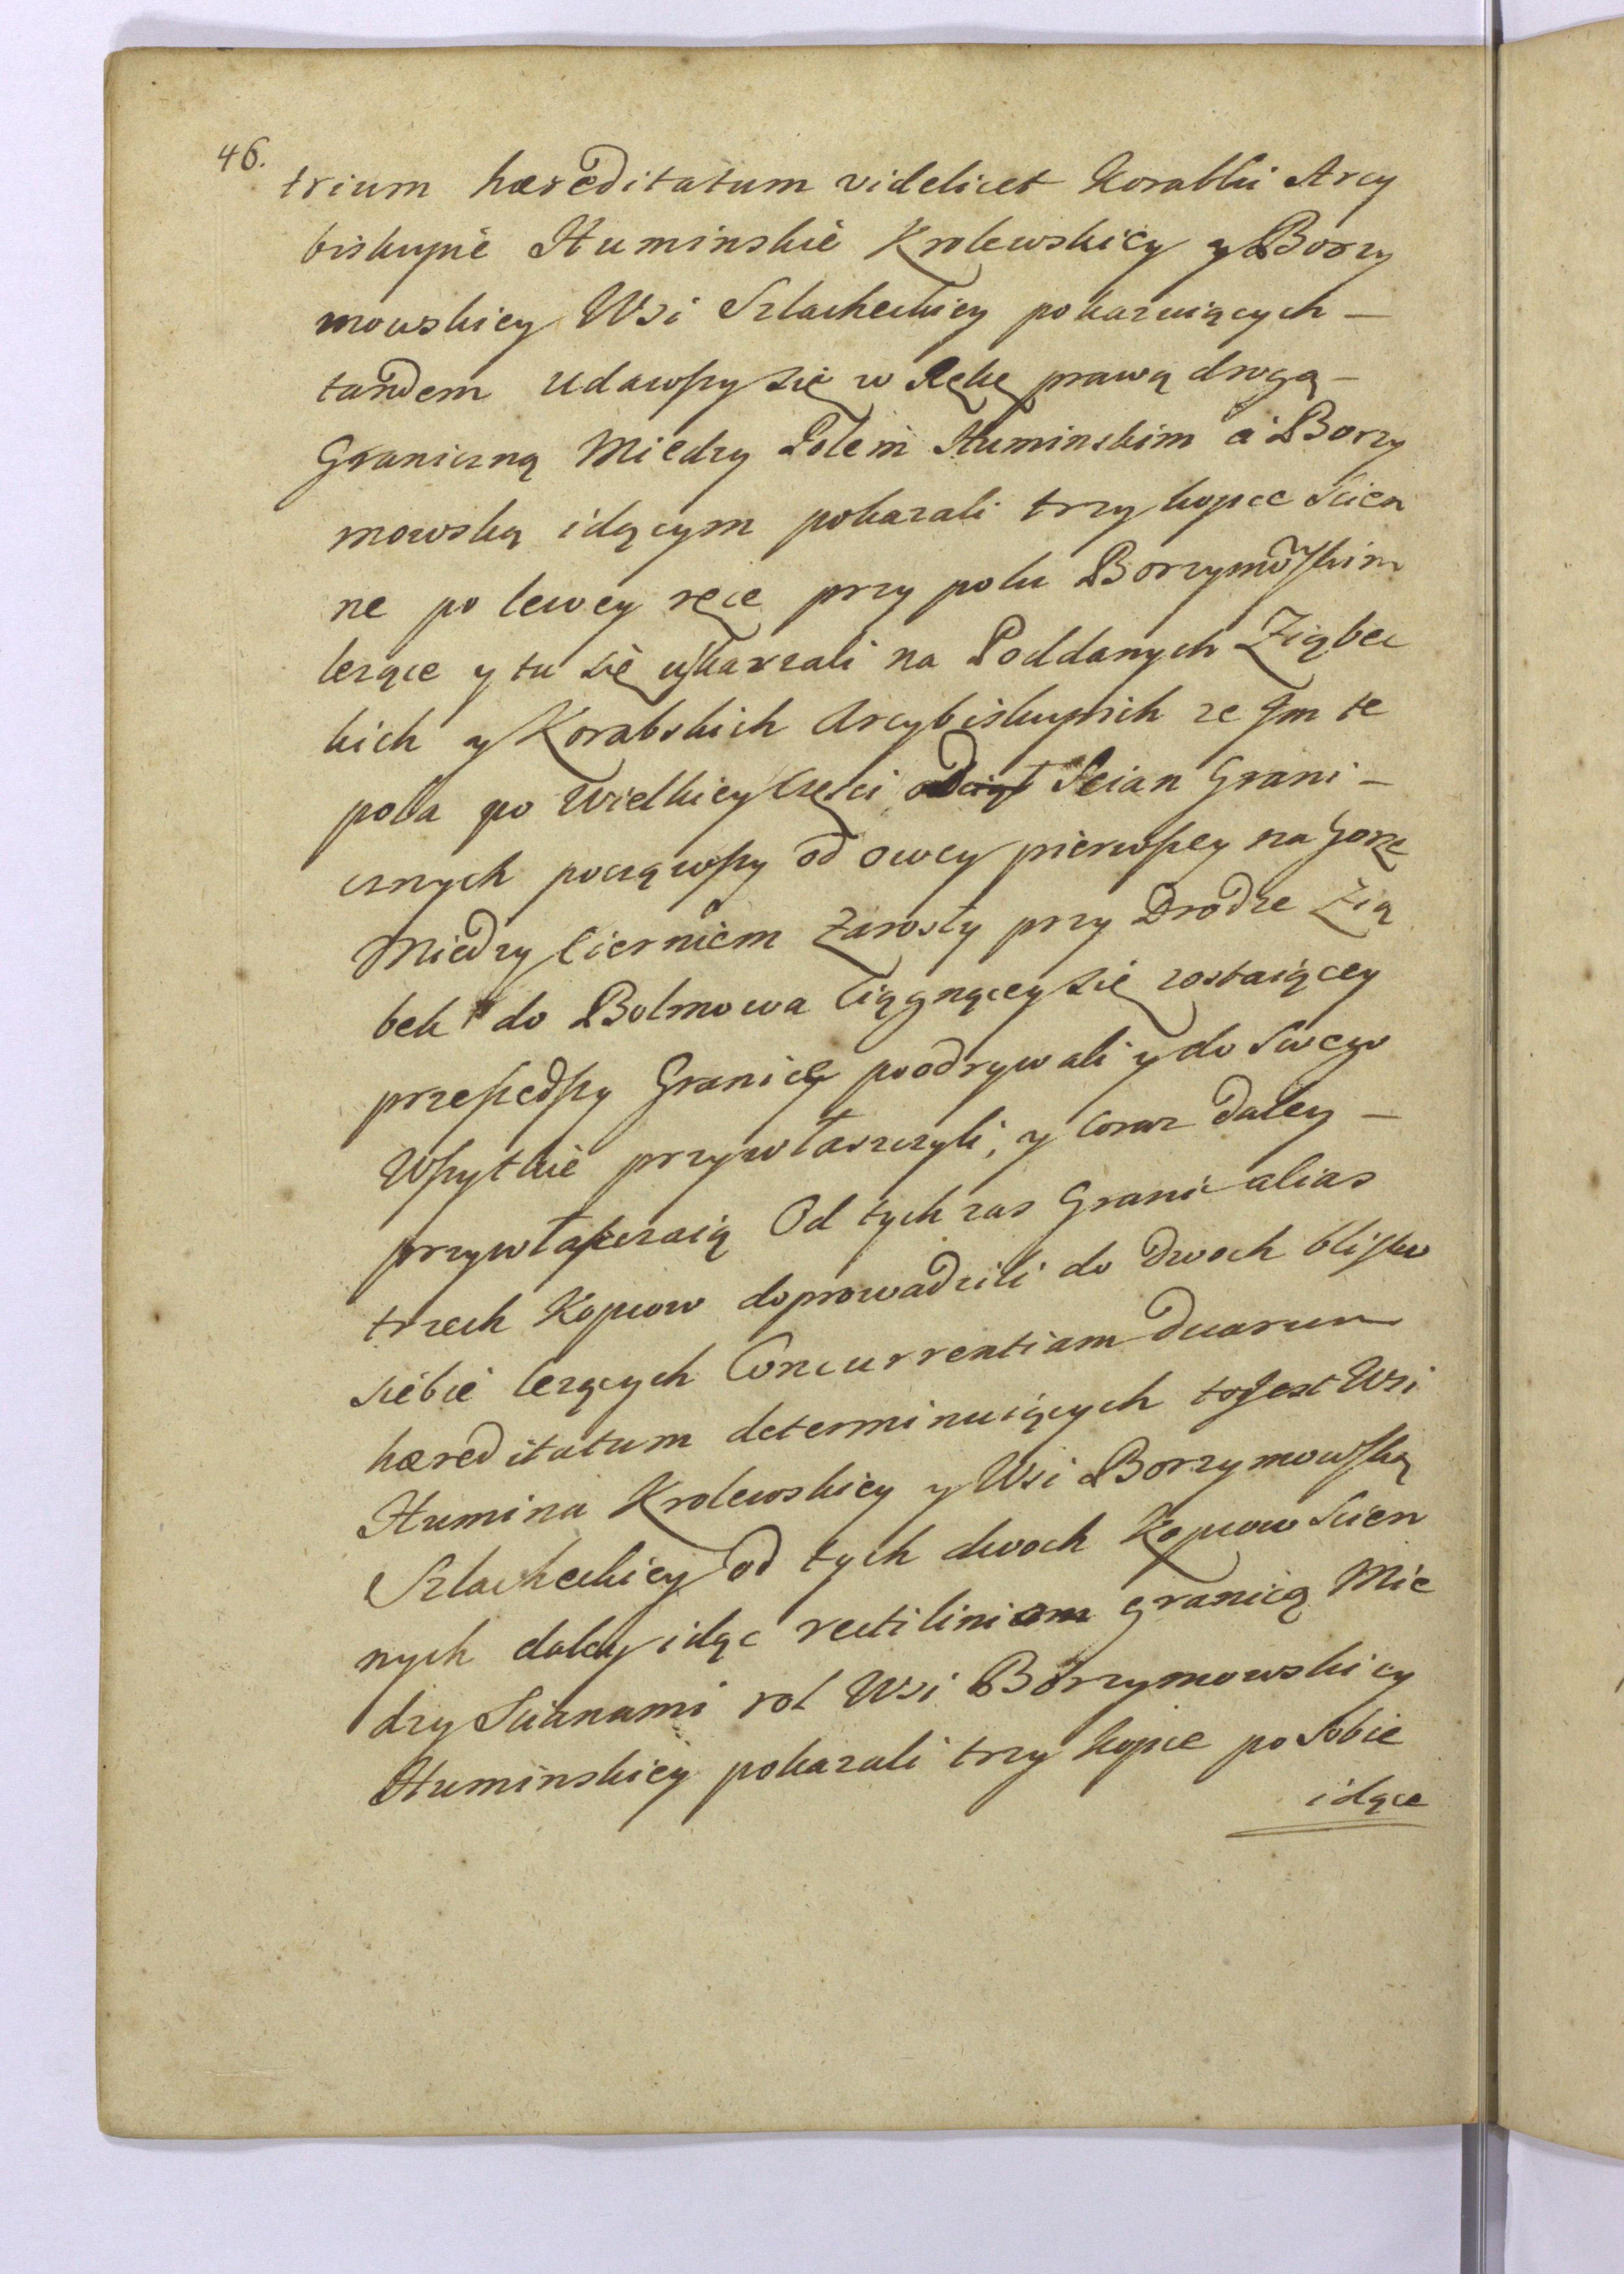 46.
trium hæreditatum videlicet Korabki Arcy
biskupie Huminskie Krolewskiey y Borzy
mowskiey Wsi Szlacheckiey pokazuiących –
tandem udawszy się w Rękę prawą drogą –
Graniczną Miedzy Polem Huminskim a Borzy
mowską idącym pokazali trzy kopce Scien
ne po lewey ręce przy polu Borzymowskim
leżące y tu się uskarzali na Poddanych Ziąbec
kich y Korabskich Arcybiskupich ze Im te
pola po Wielkiey Częsci od Scian Grani –
cznych począwszy od owey pierwszey na Gorze
Miedzy Cierniem Zarosły przy Drodze Zią
bek do Bolmowa Ciągnącey się zostaiącey
przeszedszy Granicę poodrywali y do Swego
Wszytkie przywłaszczyli, y Coraz daley –
przywłaszczaią Od tych zas Granic alias
trzech Kopcow doprowadzili do Dwoch blisko
siebie leżących Concurrentiam duarum
hæreditatum determinuiących to Jest Wsi
Humina Krolewskiey y Wsi Borzymowską
Szlacheckiey od tych dwoch Kopcow Scien
nych daley idąc rectiliniam granicą Mie
dzy Scianami rol Wsi Borzymowskiey
Huminskiey pokazali trzy kopce po Sobie
idące